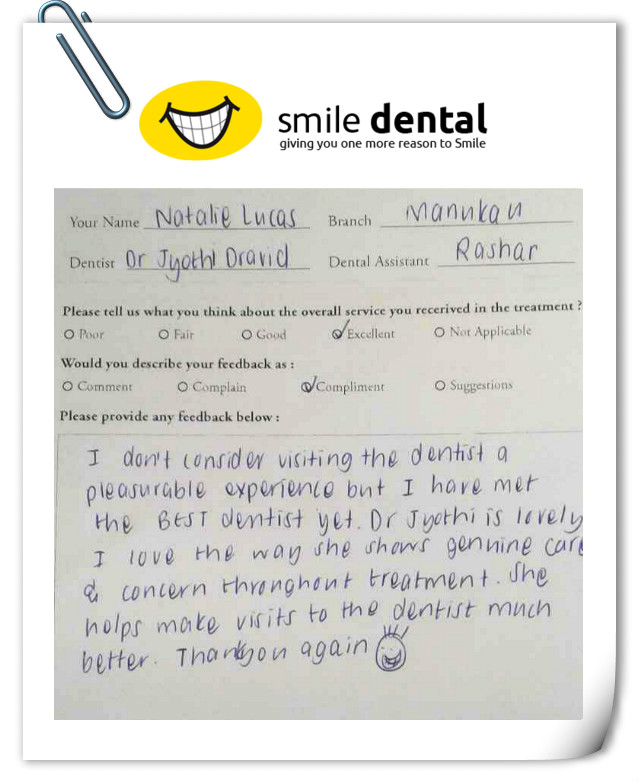 smile dental
giving you one more reason to Smile
Your Name Natalie Lucas Branch Manukau
Dentist Dr Jyothi Dravid Dental Assistant Rashar
Please tell us what you think about the overall service you recerived in the treatment ?
Poor Fair Good Excellent Not Applicable
Would you describe your feedback as :
Comment Complain Compliment Suggestions
Please provide any feedback below :
I don't consider visiting the dentist a
pleasurable experience but I have met
the BEST dentist yet. Dr Jyothi is lovely
I love the way she shows genuine care
& concern throughout treatment. She
helps make visits to the dentist much
better. Thankyou again